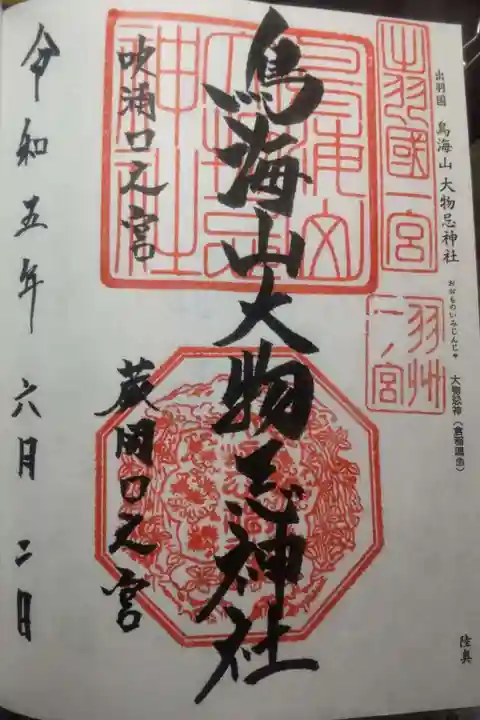 出羽国 鳥海山 大物忌神社
おおものいみじんじゃ
大物忌神
陸奥
出羽國一宮
羽州一ノ宮
鳥海山大物忌神社
吹浦口之宮
蕨岡口之宮
令和五年 六月 二日